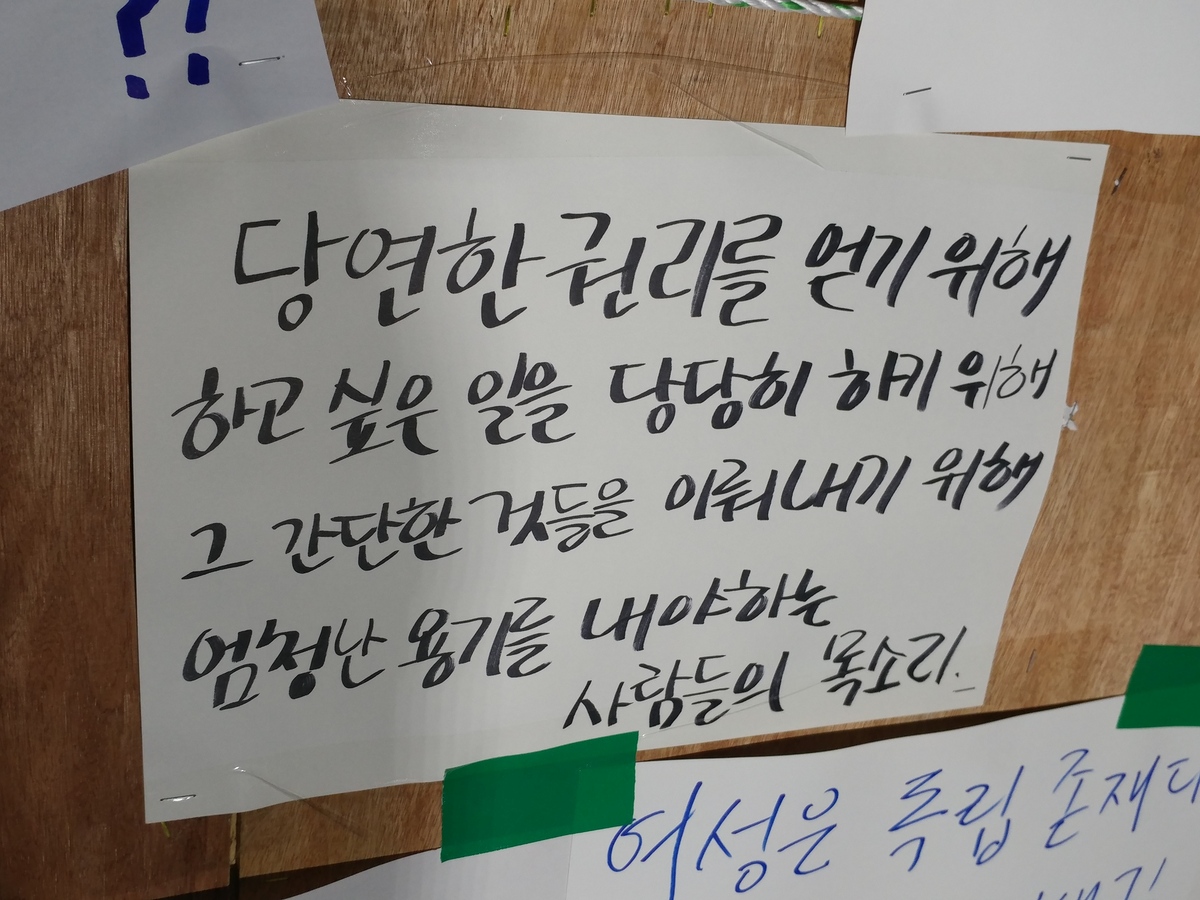 ?!
당연한 권리를 얻기 위해
하고 싶은 일을 당당히 하기 위해
그 간단한 것들을 이뤄내기 위해
엄청난 용기를 내야하는
사람들의 목소리.
여성은 독립 존재다